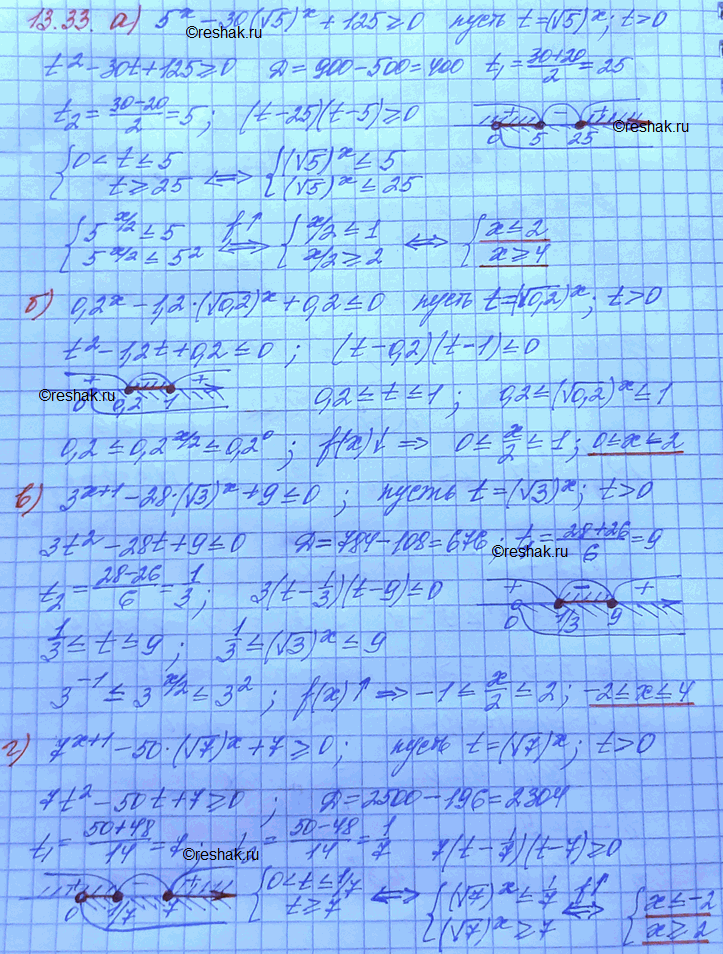 13.33. а) 5^x - 30(√5)^x + 125 ≥ 0 пусть t = (√5)^x; t > 0
©reshak.ru
t² - 30t + 125 ≥ 0 D = 900 - 500 = 400 t₁ = (30+20)/2 = 25
t₂ = (30-20)/2 = 5; (t - 25)(t - 5) ≥ 0 + - + 0 5 25 ©reshak.ru
{0 < t ≤ 5 ⟺ {(√5)^x ≤ 5
t ≥ 25 (√5)^x ≤ 25
{5^(x/2) ≤ 5 f↑ ⟺ {x/2 ≤ 1 ⟺ {x ≤ 2
5^(x/2) ≤ 5² x/2 ≥ 2 x ≥ 4
б) 0,2^x - 1,2·(√0,2)^x + 0,2 ≤ 0 пусть t = (√0,2)^x; t > 0
t² - 1,2t + 0,2 ≤ 0; (t - 0,2)(t - 1) ≤ 0
+ - + 0 0,2 1 ©reshak.ru 0,2 ≤ t ≤ 1; 0,2 ≤ (√0,2)^x ≤ 1
0,2 ≤ 0,2^(x/2) ≤ 0,2⁰; f(x)↓ ⟹ 0 ≤ x/2 ≤ 1; 0 ≤ x ≤ 2
в) 3^(x+1) - 28·(√3)^x + 9 ≤ 0; пусть t = (√3)^x; t > 0
3t² - 28t + 9 ≤ 0 D = 784 - 108 = 676; t₁ = (28+26)/6 = 9
©reshak.ru
t₂ = (28-26)/6 = 1/3; 3(t - 1/3)(t - 9) ≤ 0 + - + 0 1/3 9
1/3 ≤ t ≤ 9; 1/3 ≤ (√3)^x ≤ 9
3^(-1) ≤ 3^(x/2) ≤ 3²; f(x)↑ ⟹ -1 ≤ x/2 ≤ 2; -2 ≤ x ≤ 4
г) 7^(x+1) - 50·(√7)^x + 7 ≥ 0; пусть t = (√7)^x; t > 0
7t² - 50t + 7 ≥ 0; D = 2500 - 196 = 2304
t₁ = (50+48)/14 = 7; t₂ = (50-48)/14 = 1/7 7(t - 1/7)(t - 7) ≥ 0
©reshak.ru
+ - + 0 1/7 7 {0 < t ≤ 1/7 ⟺ {(√7)^x ≤ 1/7 f↑ ⟺ {x ≤ -2
t ≥ 7 (√7)^x ≥ 7 x ≥ 2